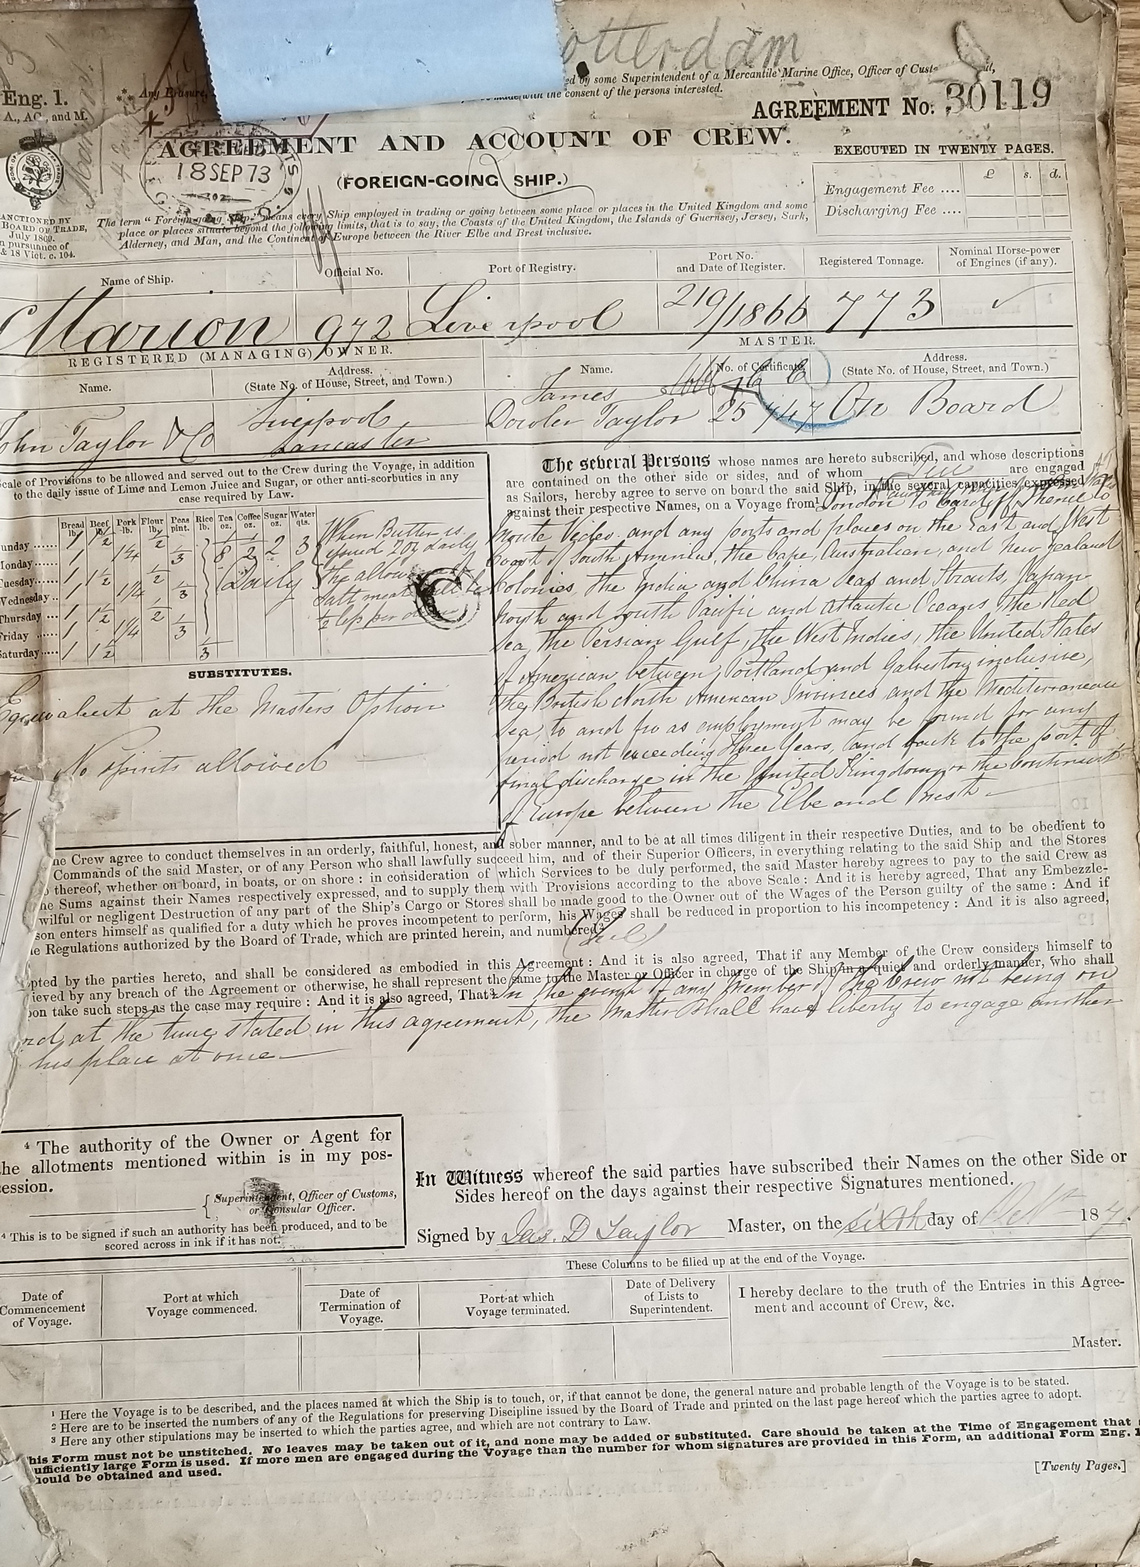 otterdam
ed by some Superintendent of a Mercantile Marine Office, Officer of
Any Erasure,
made with the consent of the persons interested.
Eng. 1.
A., AC., and M.
AGREEMENT No. 30119
AGREEMENT AND ACCOUNT OF CREW.
EXECUTED IN TWENTY PAGES.
18 SEP 73
(FOREIGN-GOING SHIP.)
£ s. d.
Engagement Fee ....
Discharging Fee ....
ANCTIONED BY
BOARD OF TRADE,
July 1869.
n pursuance of
& 18 Vict. c. 104.
The term "Foreign-going Ship," means every Ship employed in trading or going between some place or places in the United Kingdom and some
place or places situate beyond the following limits, that is to say, the Coasts of the United Kingdom, the Islands of Guernsey, Jersey, Sark,
Alderney, and Man, and the Continent of Europe between the River Elbe and Brest inclusive.
Name of Ship. Official No. Port of Registry. Port No. and Date of Register. Registered Tonnage. Nominal Horse-power of Engines (if any).
Marion 972 Liverpool 219/1866 773
REGISTERED (MANAGING) OWNER. MASTER.
Name. Address. (State No. of House, Street, and Town.) Name. No. of Certificate. Address. (State No. of House, Street, and Town.)
John Taylor & Co Liverpool Lancaster James Dowler Taylor On Board
cale of Provisions to be allowed and served out to the Crew during the Voyage, in addition
to the daily issue of Lime and Lemon Juice and Sugar, or other anti-scorbutics in any
case required by Law.
Bread lb. Beef lb. Pork lb. Flour lb. Peas pint. Rice lb. Tea oz. Coffee oz. Sugar oz. Water qts.
unday ...... 1 1½ ½
Monday ..... 1 1¼ ⅓
Tuesday ..... 1 1½ ½
Wednesday .. 1 1¼ ⅓
Thursday .... 1 1½ ½
Friday ...... 1 1¼ ⅓
Saturday ..... 1 1½
⅛ ½ 2 3
Daily
When Butter is
issued 2oz daily
The allow
Salt meat will be
½ lb per
SUBSTITUTES.
Equivalent at the Masters Option
No spirits allowed
The several Persons whose names are hereto subscribed, and whose descriptions
are contained on the other side or sides, and of whom Ten are engaged
as Sailors, hereby agree to serve on board the said Ship, in the several capacities expressed
against their respective Names, on a Voyage from London to Cardiff thence to
Monte Video and any ports and places on the East and West
Coast of South America, the Cape, Australian, and New Zealand
Colonies, the India and China Seas and Straits, Japan
North and South Pacific and Atlantic Oceans, the Red
Sea, the Persian Gulf, the West Indies, the United States
of American between Portland and Galveston inclusive,
the British North American Provinces and the Mediterranean
Sea, to and fro as employment may be found for any
period not exceeding Three Years, and back to the port of
final discharge in the United Kingdom or the Continent
of Europe between the Elbe and Brest.
he Crew agree to conduct themselves in an orderly, faithful, honest, and sober manner, and to be at all times diligent in their respective Duties, and to be obedient to
Commands of the said Master, or of any Person who shall lawfully succeed him, and of their Superior Officers, in everything relating to the said Ship and the Stores
thereof, whether on board, in boats, or on shore: in consideration of which Services to be duly performed, the said Master hereby agrees to pay to the said Crew as
e Sums against their Names respectively expressed, and to supply them with Provisions according to the above Scale: And it is hereby agreed, That any Embezzle-
wilful or negligent Destruction of any part of the Ship's Cargo or Stores shall be made good to the Owner out of the Wages of the Person guilty of the same: And if
son enters himself as qualified for a duty which he proves incompetent to perform, his Wages shall be reduced in proportion to his incompetency: And it is also agreed,
e Regulations authorized by the Board of Trade, which are printed herein, and numbered²
opted by the parties hereto, and shall be considered as embodied in this Agreement: And it is also agreed, That if any Member of the Crew considers himself to
ieved by any breach of the Agreement or otherwise, he shall represent the same to the Master or Officer in charge of the Ship in a quiet and orderly manner, who shall
on take such steps as the case may require: And it is also agreed, That³ In the event of any member of the Crew not being on
rd, at the time stated in this agreement, the Master shall have liberty to engage another
his place at once.
⁴ The authority of the Owner or Agent for
he allotments mentioned within is in my pos-
ession.
Superintendent, Officer of Customs,
or Consular Officer.
⁴ This is to be signed if such an authority has been produced, and to be
scored across in ink if it has not.
In Witness whereof the said parties have subscribed their Names on the other Side or
Sides hereof on the days against their respective Signatures mentioned.
Signed by Jas. D Taylor Master, on the sixth day of Octr 187
These Columns to be filled up at the end of the Voyage.
Date of Commencement of Voyage. Port at which Voyage commenced. Date of Termination of Voyage. Port at which Voyage terminated. Date of Delivery of Lists to Superintendent.
I hereby declare to the truth of the Entries in this Agree-
ment and account of Crew, &c.
Master.
¹ Here the Voyage is to be described, and the places named at which the Ship is to touch, or, if that cannot be done, the general nature and probable length of the Voyage is to be stated.
² Here are to be inserted the numbers of any of the Regulations for preserving Discipline issued by the Board of Trade and printed on the last page hereof which the parties agree to adopt.
³ Here any other stipulations may be inserted to which the parties agree, and which are not contrary to Law.
his Form must not be unstitched. No leaves may be taken out of it, and none may be added or substituted. Care should be taken at the Time of Engagement that
ufficiently large Form is used. If more men are engaged during the Voyage than the number for whom signatures are provided in this Form, an additional Form Eng. 1
hould be obtained and used.
[Twenty Pages.]